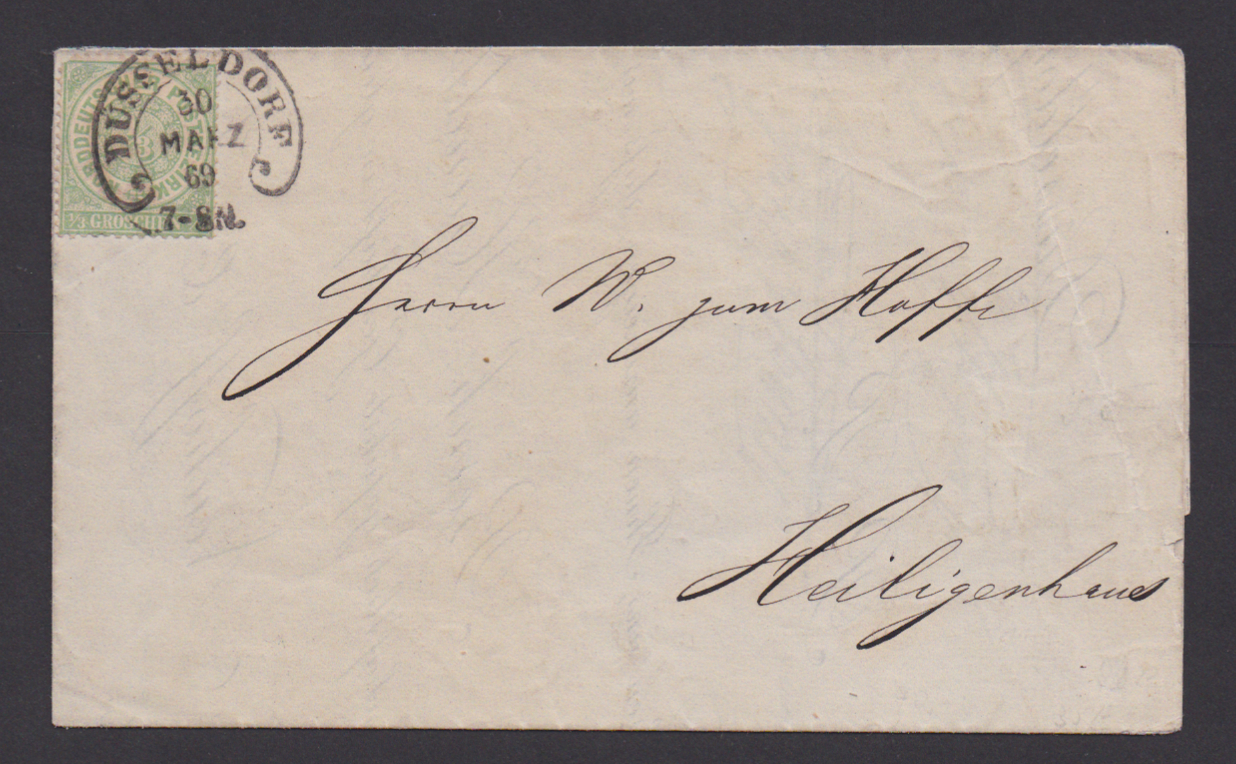 DÜSSELDORF
30
MAERZ
69
7-8N.
NORDDEUTSCHER POSTBEZIRK
1/3 GROSCHEN
Herrn W. zum Hoffe
Heiligenhaus